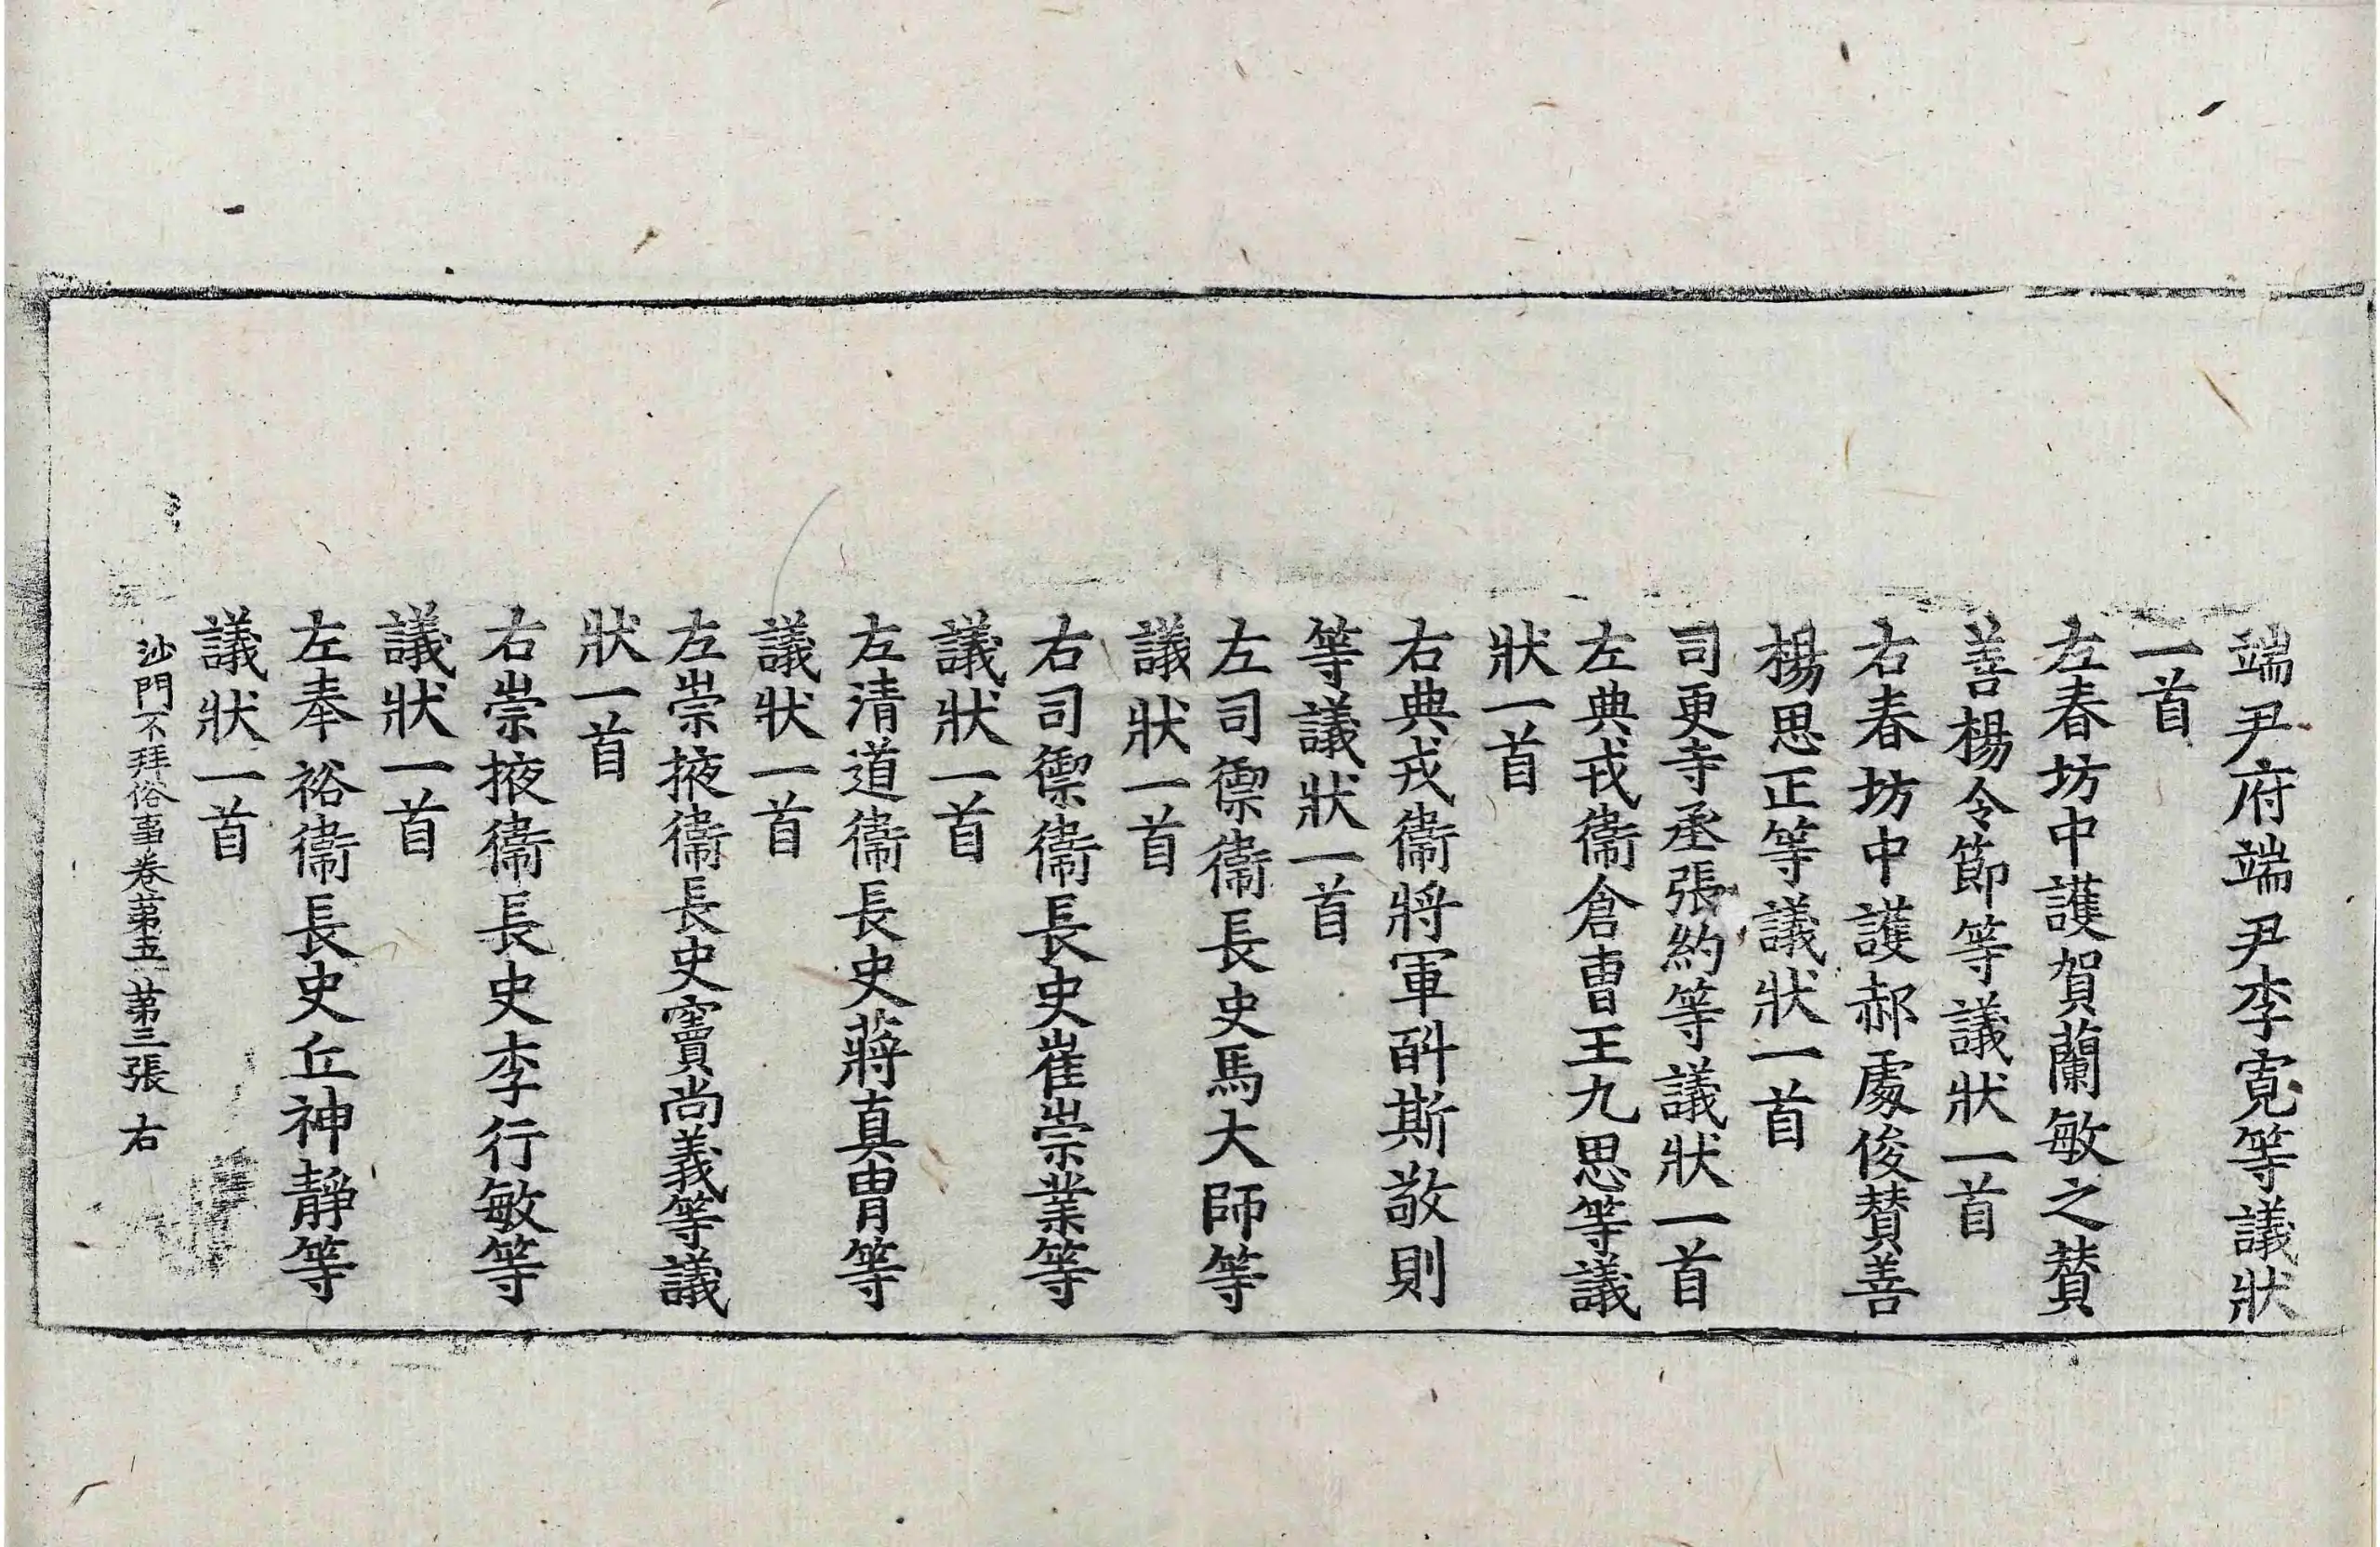 端尹府端尹李寬等議狀
一首
左春坊中護賀蘭敏之賛
善楊令節等議狀一首
右春坊中護郝處俊賛善
楊思正等議狀一首
司更寺丞張約等議狀一首
左典戎衞倉曹王九思等議
狀一首
右典戎衞將軍斛斯敬則
等議狀一首
左司禦衞長史馬大師等
議狀一首
右司禦衞長史崔崇業等
議狀一首
左清道衞長史蔣真胄等
議狀一首
左崇掖衞長史竇尚義等議
狀一首
右崇掖衞長史李行敏等
議狀一首
左奉裕衞長史丘神靜等
議狀一首
沙門不拜俗事卷第五 第三張 右